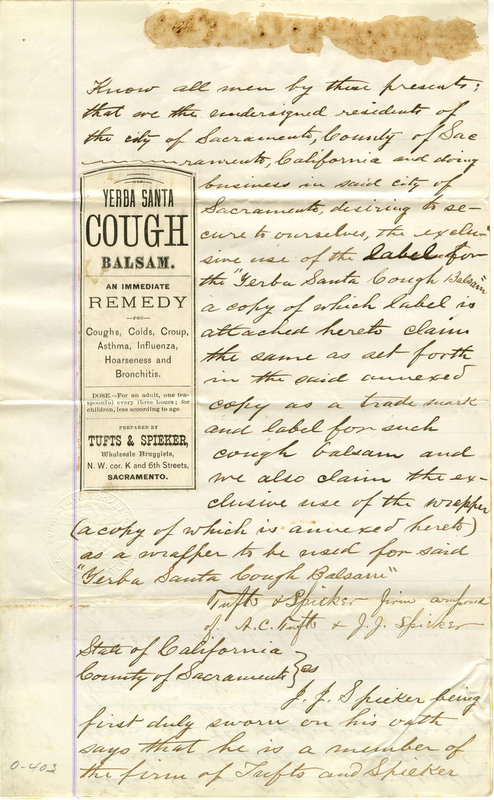 Know all men by these presents;
that we the undersigned residents of
the city of Sacramento, County of Sac
ramento, California and doing
business in said city of
Sacramento, desiring to se-
cure to ourselves, the exclu-
sive use of the label for
the "Yerba Santa Cough Balsam"
a copy of which label is
attached hereto claim
the same as set forth
in the said annexed
copy as a trade mark
and label for such
cough balsam and
we also claim the ex-
clusive use of the wrapper
(a copy of which is annexed hereto)
as a wrapper to be used for said
"Yerba Santa Cough Balsam"
Tufts & Spieker firm composed
of A.C. Tufts & J.J. Spieker
State of California
County of Sacramento } ss
J. J. Spieker being
first duly sworn on his oath
says that he is a member of
the firm of Tufts and Spieker
YERBA SANTA
COUGH
BALSAM.
AN IMMEDIATE
REMEDY
—FOR—
Coughs, Colds, Croup,
Asthma, Influenza,
Hoarseness and
Bronchitis.
DOSE—For an adult, one tea-
spoonful every three hours; for
children, less according to age
PREPARED BY
TUFTS & SPIEKER,
Wholesale Druggists,
N. W. cor. K and 6th Streets,
SACRAMENTO.
0-403